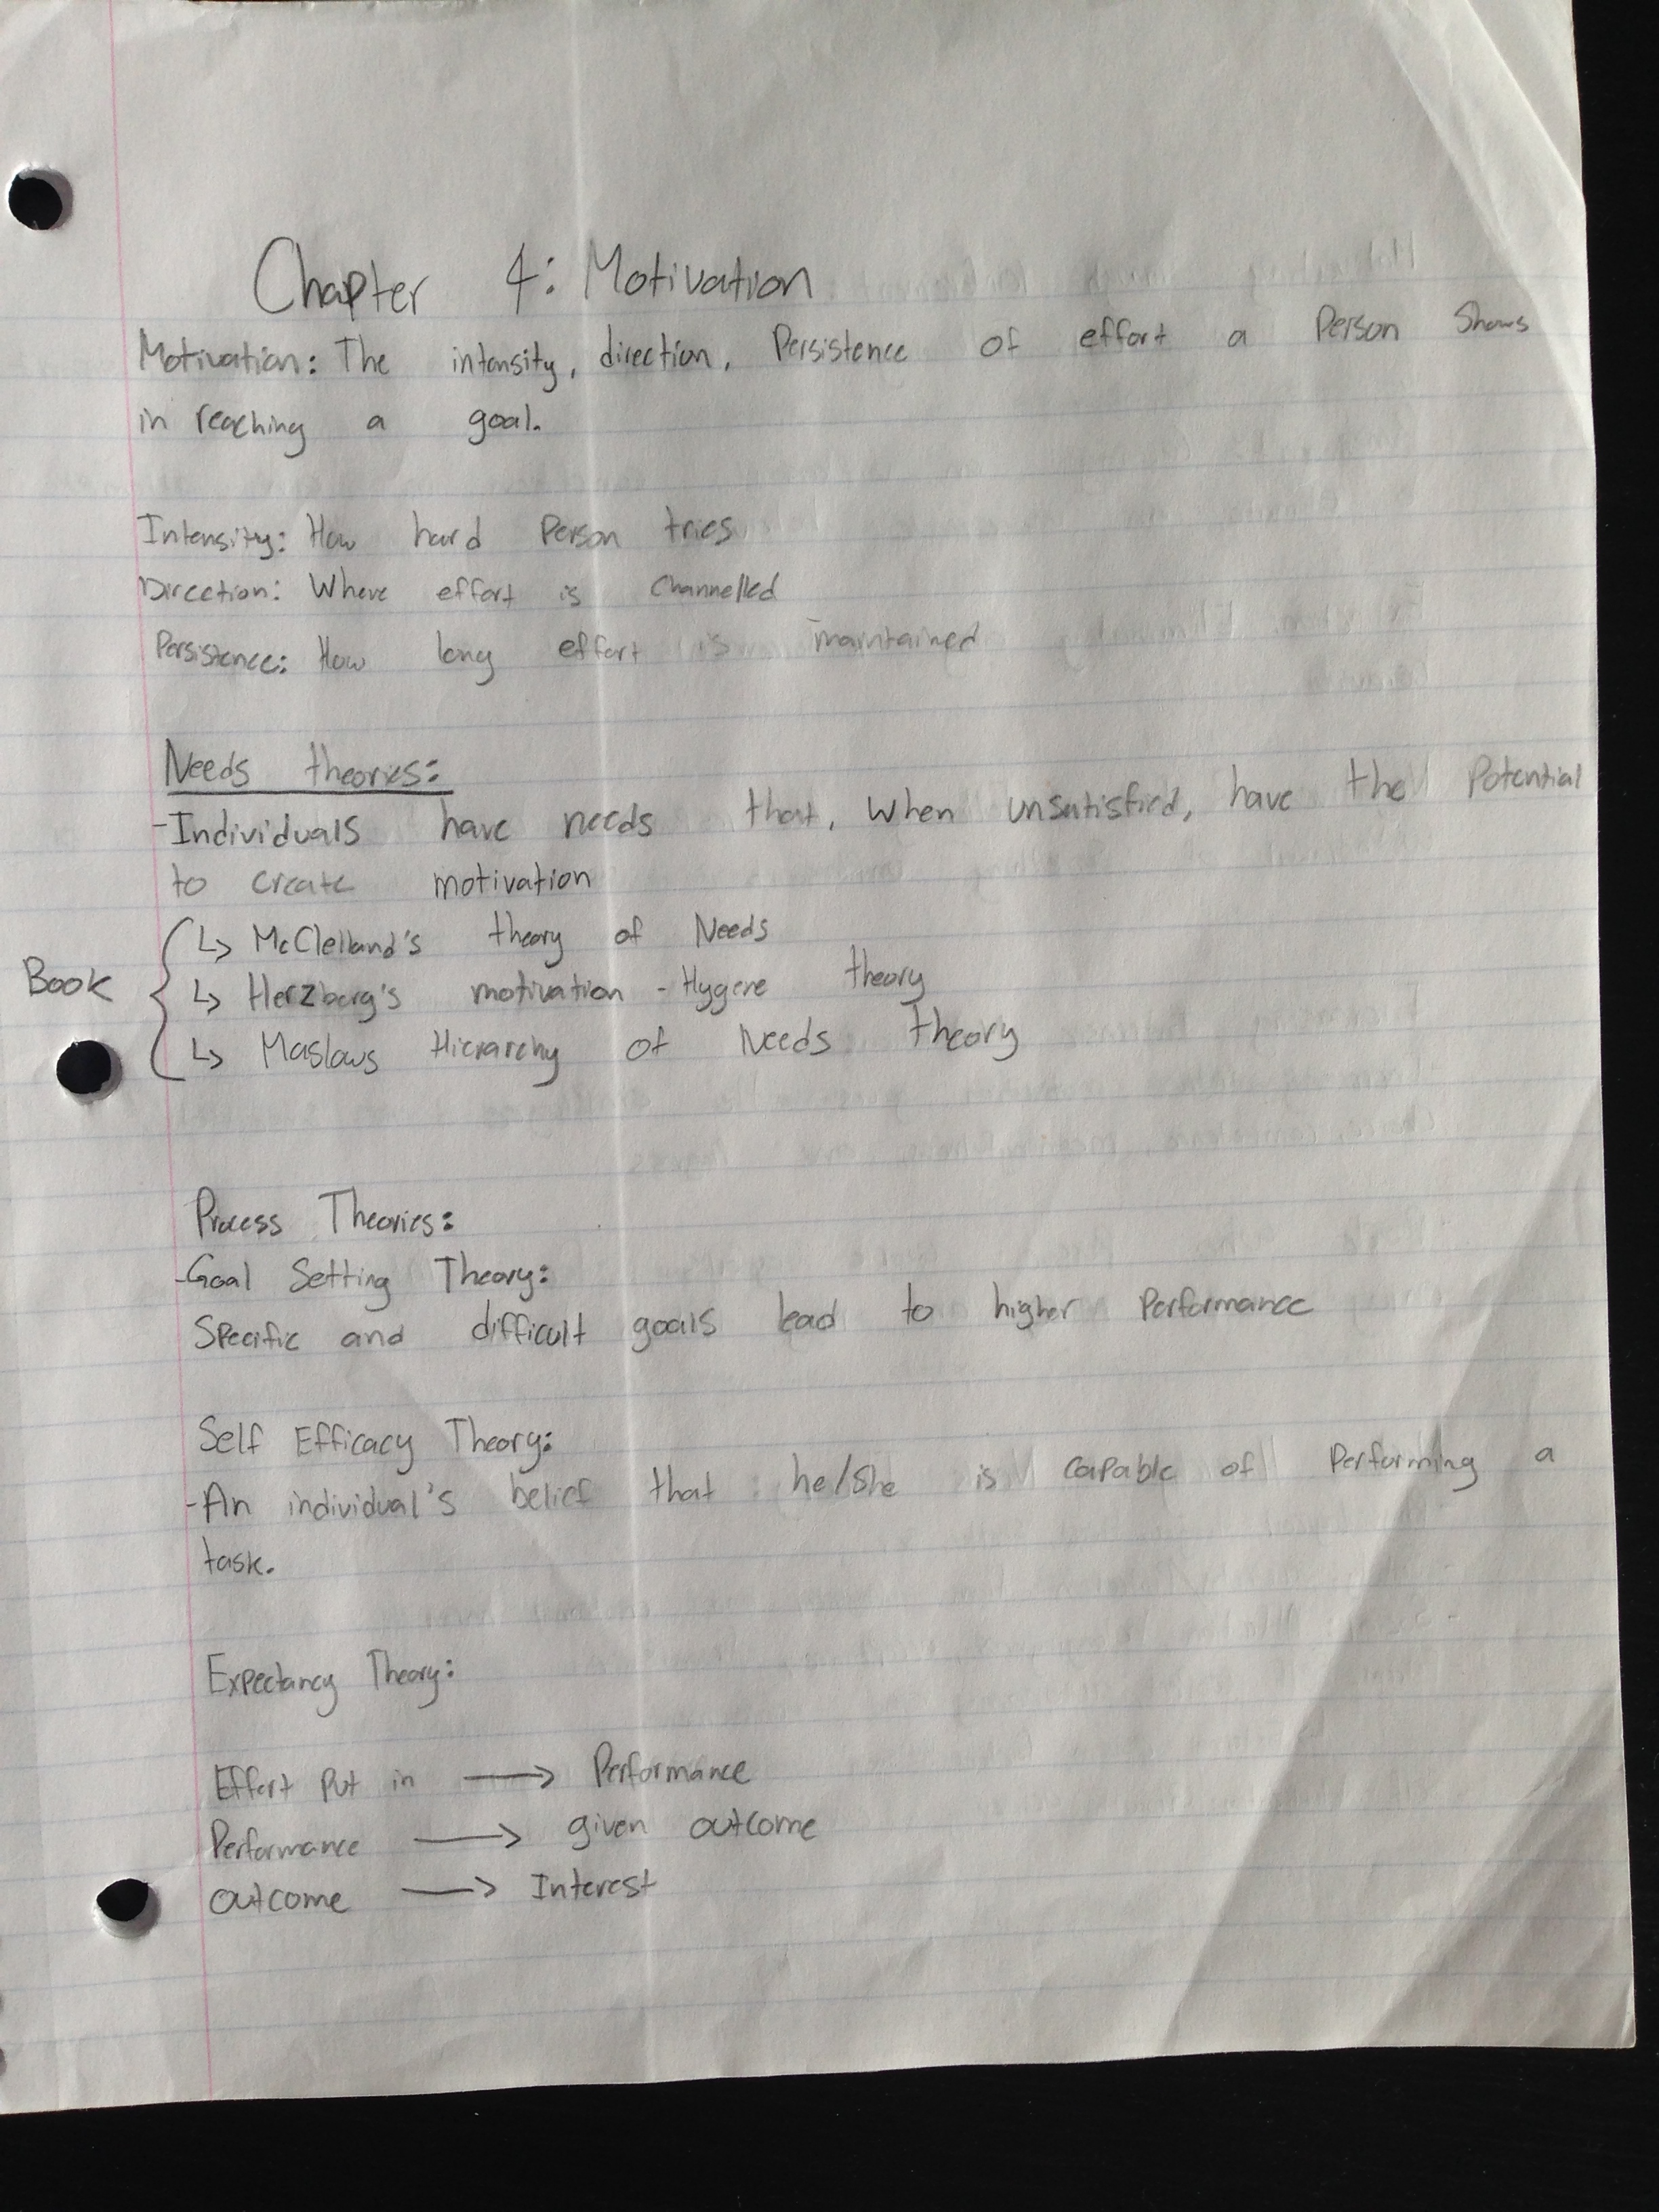 Chapter 4: Motivation
Motivation: The intensity, direction, Persistence of effort a Person Shows
in reaching a goal.
Intensity: How hard Person tries
Direction: Where effort is Channelled
Persistence: How long effort is maintained
Needs theories:
-Individuals have needs that, when unsatisfied, have the Potential
to create motivation
Book
↳ McClelland's theory of Needs
↳ Herzberg's motivation - Hygene theory
↳ Maslows Hierarchy of Needs theory
Process Theories:
-Goal Setting Theory:
Specific and difficult goals lead to higher Performance
Self Efficacy Theory:
-An individual's belief that he/she is capable of Performing a
task.
Expectancy Theory:
Effort Put in → Performance
Performance → given outcome
outcome → Interest